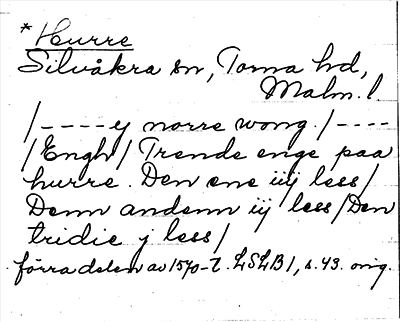 *Hurre
Silvåkra sn, Torna hd,
Malm. l.
/----y norre wong./----
/Engh/ Trende enge paa
hurre. Den ene iiij less/
Denn andenn iij less/Den
tridie j less/
förra delen av 1570-t. LSLB 1, s. 43. orig.